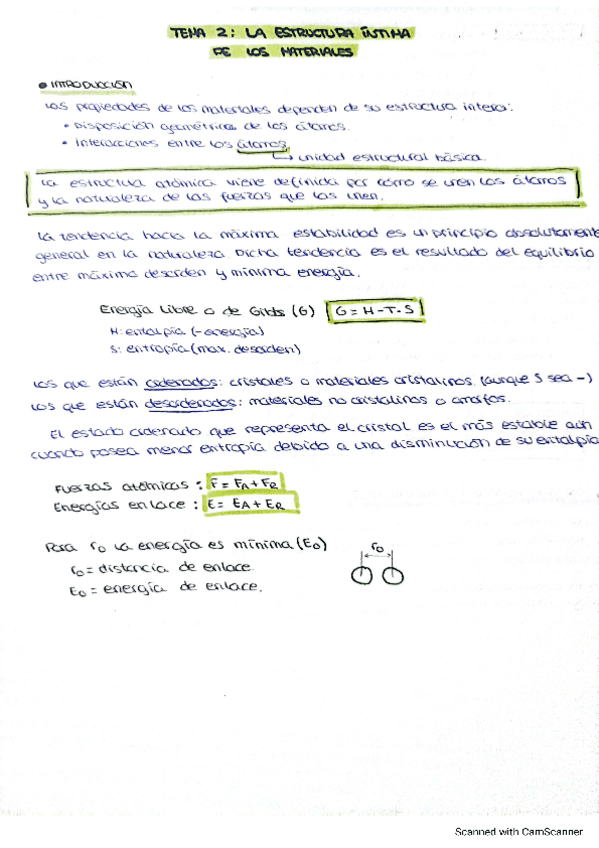 TEMA 2: LA ESTRUCTURA ÍNTIMA
DE LOS MATERIALES
• INTRODUCCIÓN
Las propiedades de los materiales dependen de su estructura interna:
• Disposición geométrica de los átomos.
• Interacciones entre los átomos.
→ unidad estructural básica
La estructura atómica viene definida por cómo se unen los átomos
y la naturaleza de las fuerzas que los unen.
La tendencia hacia la máxima estabilidad es un principio absolutamente
general en la naturaleza. Dicha tendencia es el resultado del equilibrio
entre máximo desorden y mínima energía.
Energía Libre o de Gibbs (G) G = H - T · S
H: entalpía (- energía)
S: entropía (max. desorden)
Los que están ordenados: cristales o materiales cristalinos. (aunque S sea -)
Los que están desordenados: materiales no cristalinos o amorfos.
El estado ordenado que representa el cristal es el más estable aún
cuando posea menor entropía debido a una disminución de su entalpía
Fuerzas atómicas: F = FA + FR
Energías enlace: E = EA + ER
Para r0 la energía es mínima (E0)
r0
r0 = distancia de enlace
E0 = energía de enlace.
Scanned with CamScanner